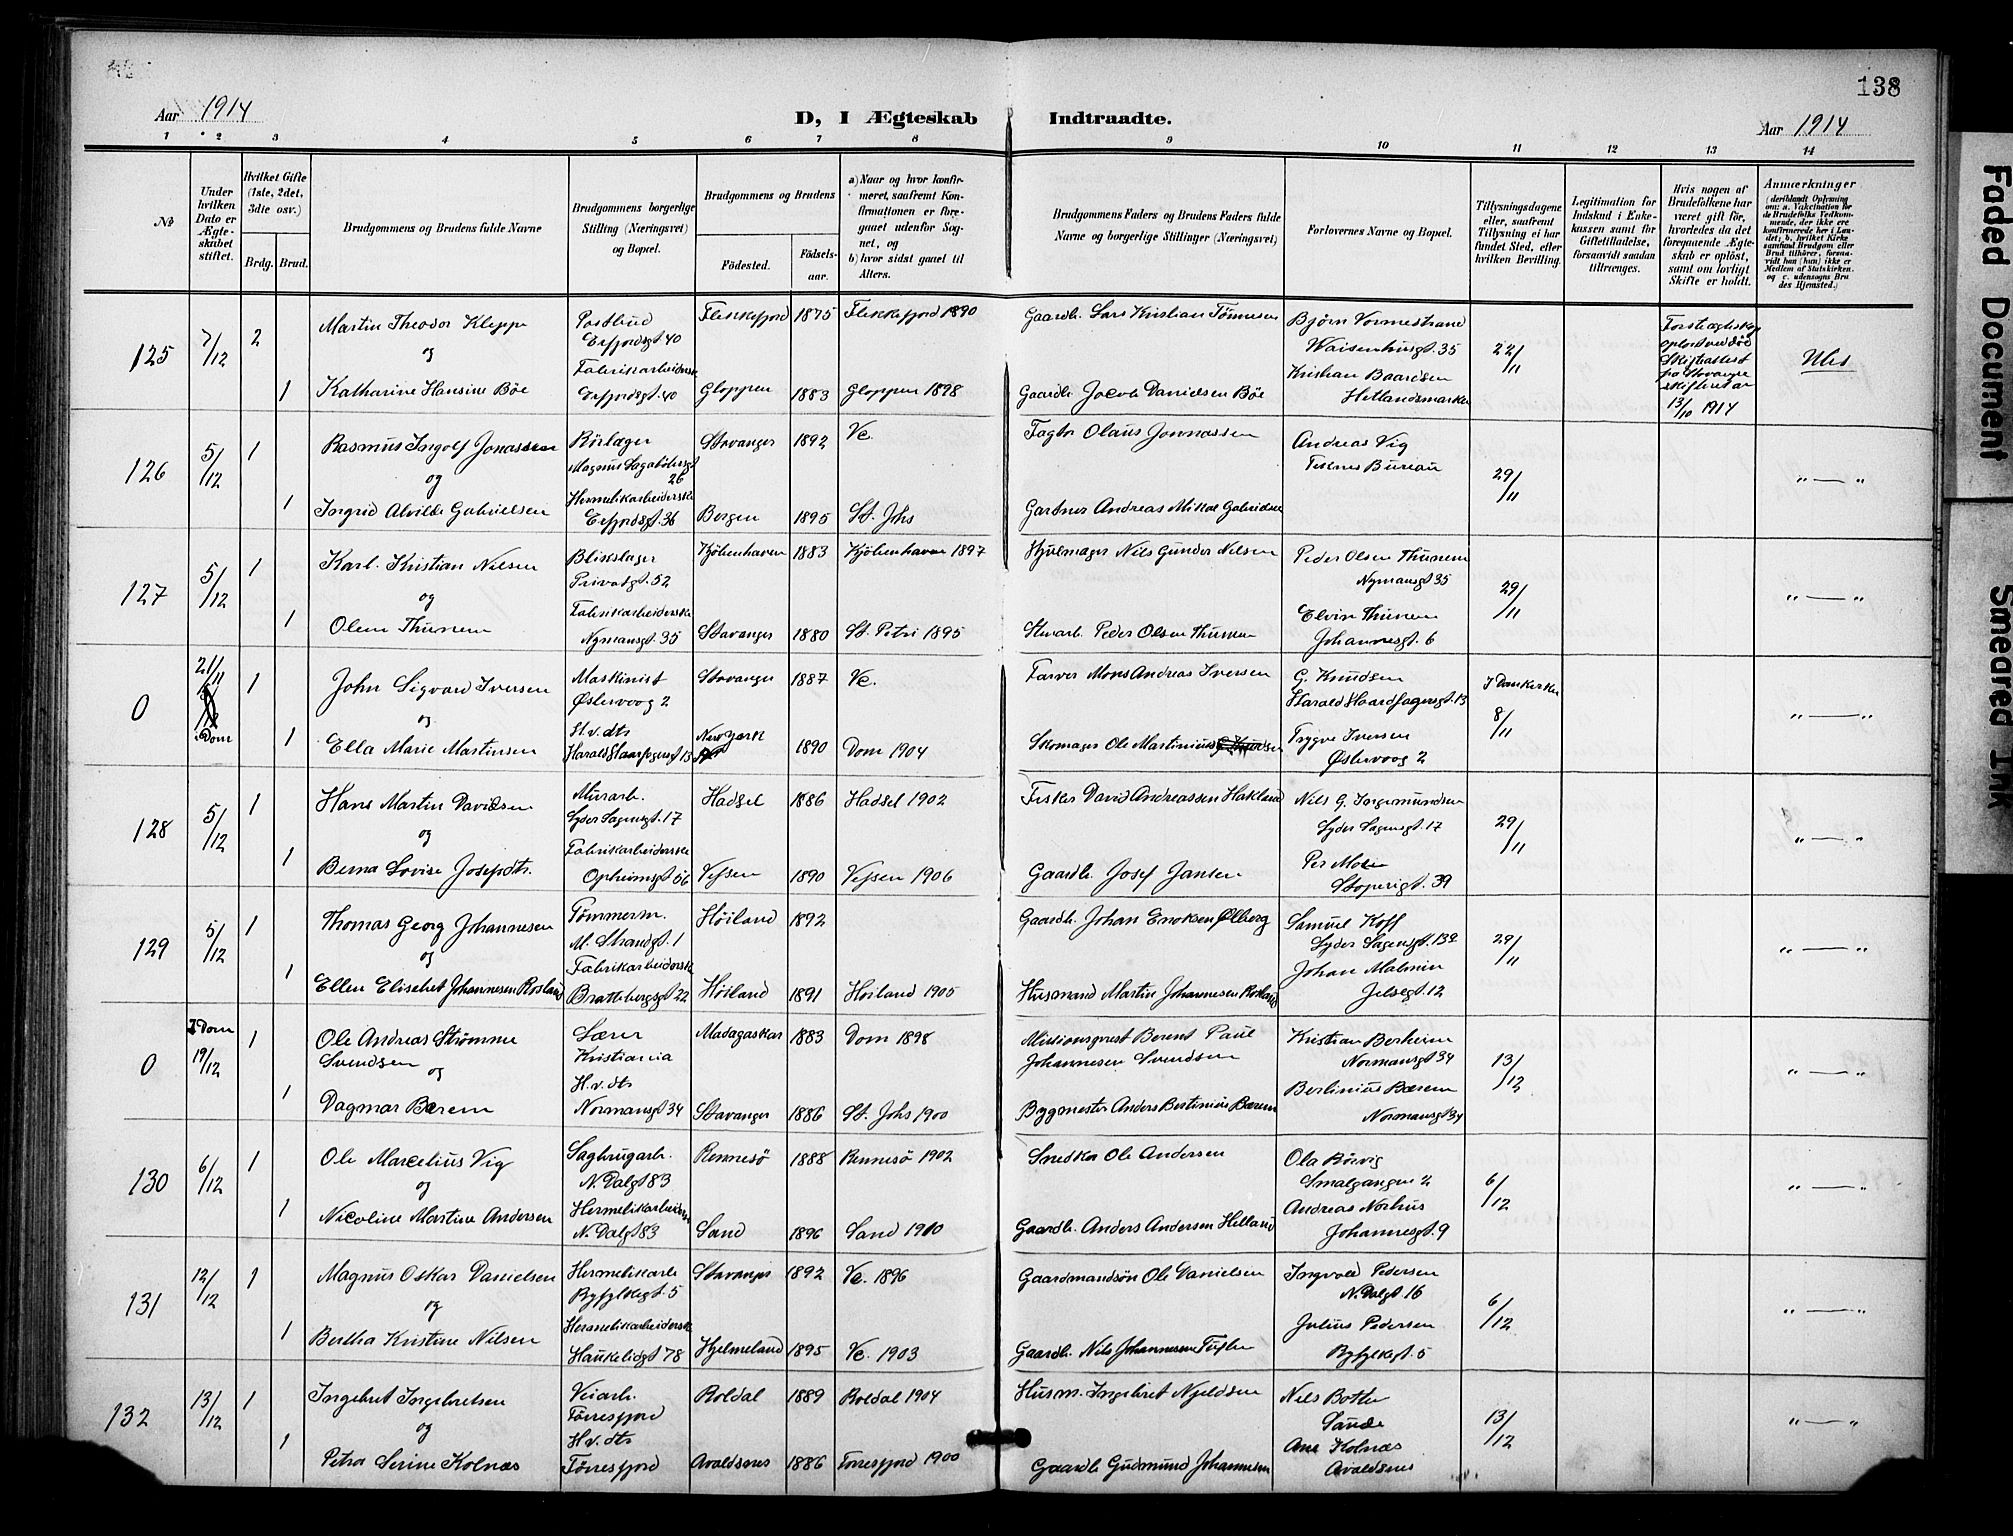 138
Aar 1914
D, I Ægteskab Indtraadte.
Aar 1914
1 2 3 4 5 6 7 8 9 10 11 12 13 14
№
Under hvilken Dato er Ægteskabet stiftet.
Hvilket Gifte (1ste, 2det, 3die osv.)
Brdg. Brud.
Brudgommens og Brudens fulde Navne
Brudgommens borgerlige Stilling (Næringsvei) og Bopæl.
Brudgommens og Brudens
Fødested. Fødselsaar.
a) Naar og hvor konfirmeret, saafremt Konfirmationen er foregaaet udenfor Sognet, og
b) hvor sidst gaaet til Alters.
Brudgommens Faders og Brudens Faders fulde Navne og borgerlige Stillinger (Næringsvei)
Forlovernes Navne og Bopæl.
Tillysningsdagene eller, saafremt Tillysning ei har fundet Sted, efter hvilken Bevilling.
Legitimation for Indskud i Enkekassen samt for Giftetilladelse, forsaavidt saadan tiltrænges.
Hvis nogen af Brudefolkene har været gift før, hvorledes da det foregaaende Ægteskab er opløst, samt om lovligt Skifte er holdt.
Anmærkninger
125 7/12 2 Martin Theodor Kleppe Postbud Flekkefjord 1875 Flekkefjord 1890 Gaardb. Lars Kristian Tönnesen Björn Vormestrand
og Erfjordsgt. 40 Waisenhusgt. 35 22/11
Fabrikarbeiderske Kristian Baardsen
1 Katharine Hansine Böe Erfjordsgt. 40 Gloppen 1883 Gloppen 1898 Gaardb. Jacob Danielsen Böe Hetlandsmarken
13/10 1914
126 5/12 1 Rasmus Ingolf Jonassen Rörlæger Stavanger 1892 Ve. Fagbr Olaus Jonnassen Andreas Vig
og 26 Bureau 29/11 " — "
1 Ingrid Alvilde Gabrielsen Hermetikarbeiderske Erfjordsgt. 36 Bergen 1895 St. Johs Gartner Andreas Mikal Gabrielsen
127 5/12 1 Karl Kristian Nilsen Blikslager Kjöbenhavn 1883 Kjöbenhavn 1897 Hjulmager Nils Gunder Nilsen Peder Olsen Thunem
og Privatgt. 52 Nymansgt 35 29/11 " — "
Fabrikarbeiderske Elvin Thunem
1 Olena Thunem Nymansgt. 35 Stavanger 1880 St. Petri 1895 Stuarb. Peder Olsen Thunem Johannesgt. 6
0 21/11 Dom 1 John Sigvard Iversen Maskinist Stavanger 1887 Ve. Farver Mons Andreas Iversen G. Knudsen I Domkirken
og Østervaag 2 Harald Haardfagersgt. 13 8/11 " — "
H.v. dts Trygve Iversen
1 Ella Marie Martinsen Harald Haarfagersgt 13 New York 1890 Dom 1904 Skomager Ole Martinius Østervaag 2
128 5/12 1 Hans Martin Davidsen Murarb. Hadsel 1886 Hadsel 1902 Fisker David Andreassen Hakland Nils G. Ingemundsen
og Lyder Sagensgt. 17 Lyder Sagensgt. 17 29/11 " — "
Fabrikarbeiderske Per
1 Berna Lovise Josefsdtr. Opheimsgt 56 Vefsen 1890 Vefsen 1906 Gaardb. Josef Jansen 39
129 5/12 1 Thomas Georg Johannesen Tömmerm. Höiland 1892 Gaardb. Johan Enoksen Ølberg Samuel Koff
og M. Strandgt. 1 Lyder Sagensgt. 13 29/11 " — "
Fabrikarbeiderske Johan Malmin
1 Ellen Elisebet Johannesen Rosland Brattebergsgt 22 Höiland 1891 Höiland 1905 Husmand Martin Johannesen Rosland Jelsegt. 12
0 I Dom 19/12 1 Ole Andreas Strömme Lærer Madagaskar 1883 Dom 1898 Missionsprest Berent Paul Kristian Berheim
Svendsen og Kristiania Johannesen Svendsen Normansgt 34 13/12 " — "
H.v. dts Bertinius Bærem
1 Dagmar Bærem Normansgt 34 Stavanger 1886 St. Johs 1900 Bygmester Anders Bertinius Bærem Normansgt 34
130 6/12 1 Ole Marcelius Vig Sagbrugarb. Rennesö 1888 Rennesö 1902 Snedker Ole Andersen Ola Rövig
og N. Dalgt 83 Smalgangen 2 6/12 " — "
Andreas Norhus
1 Nicoline Martine Andersen N. Dalgt 83 Sand 1896 Sand 1910 Gaardb. Anders Andersen Helland Johannesgt. 9
131 12/12 1 Magnus Oskar Danielsen Hermetikarb. Stavanger 1892 Ve. 1896 Gaardmandsön Ole Danielsen Ingvald Pedersen
og Ryfylkegt. 5 N. Dalgt 16 6/12 " — "
Hermetikarbeiderske Julius Pedersen
1 Bertha Kristine Nilsen Haukeligt 78 Hjelmeland 1895 Ve. 1903 Gaardb. Nils Johannesen Ryfylkegt. 5
132 13/12 1 Ingebret Ingebretsen Veiarb. Roldal 1889 Roldal 1904 Husm. Ingebret Njeldsen Nils Bothn
og Förresfjord Saude 13/12 " — "
H.v. dts Ane Kolnæs
1 Petra Serine Kolnæs Förresfjord Avaldsnes 1886 Förresfjord 1900 Gaardb. Gudmund Johannesen Avaldsnes
Faded Document
Smeared Ink